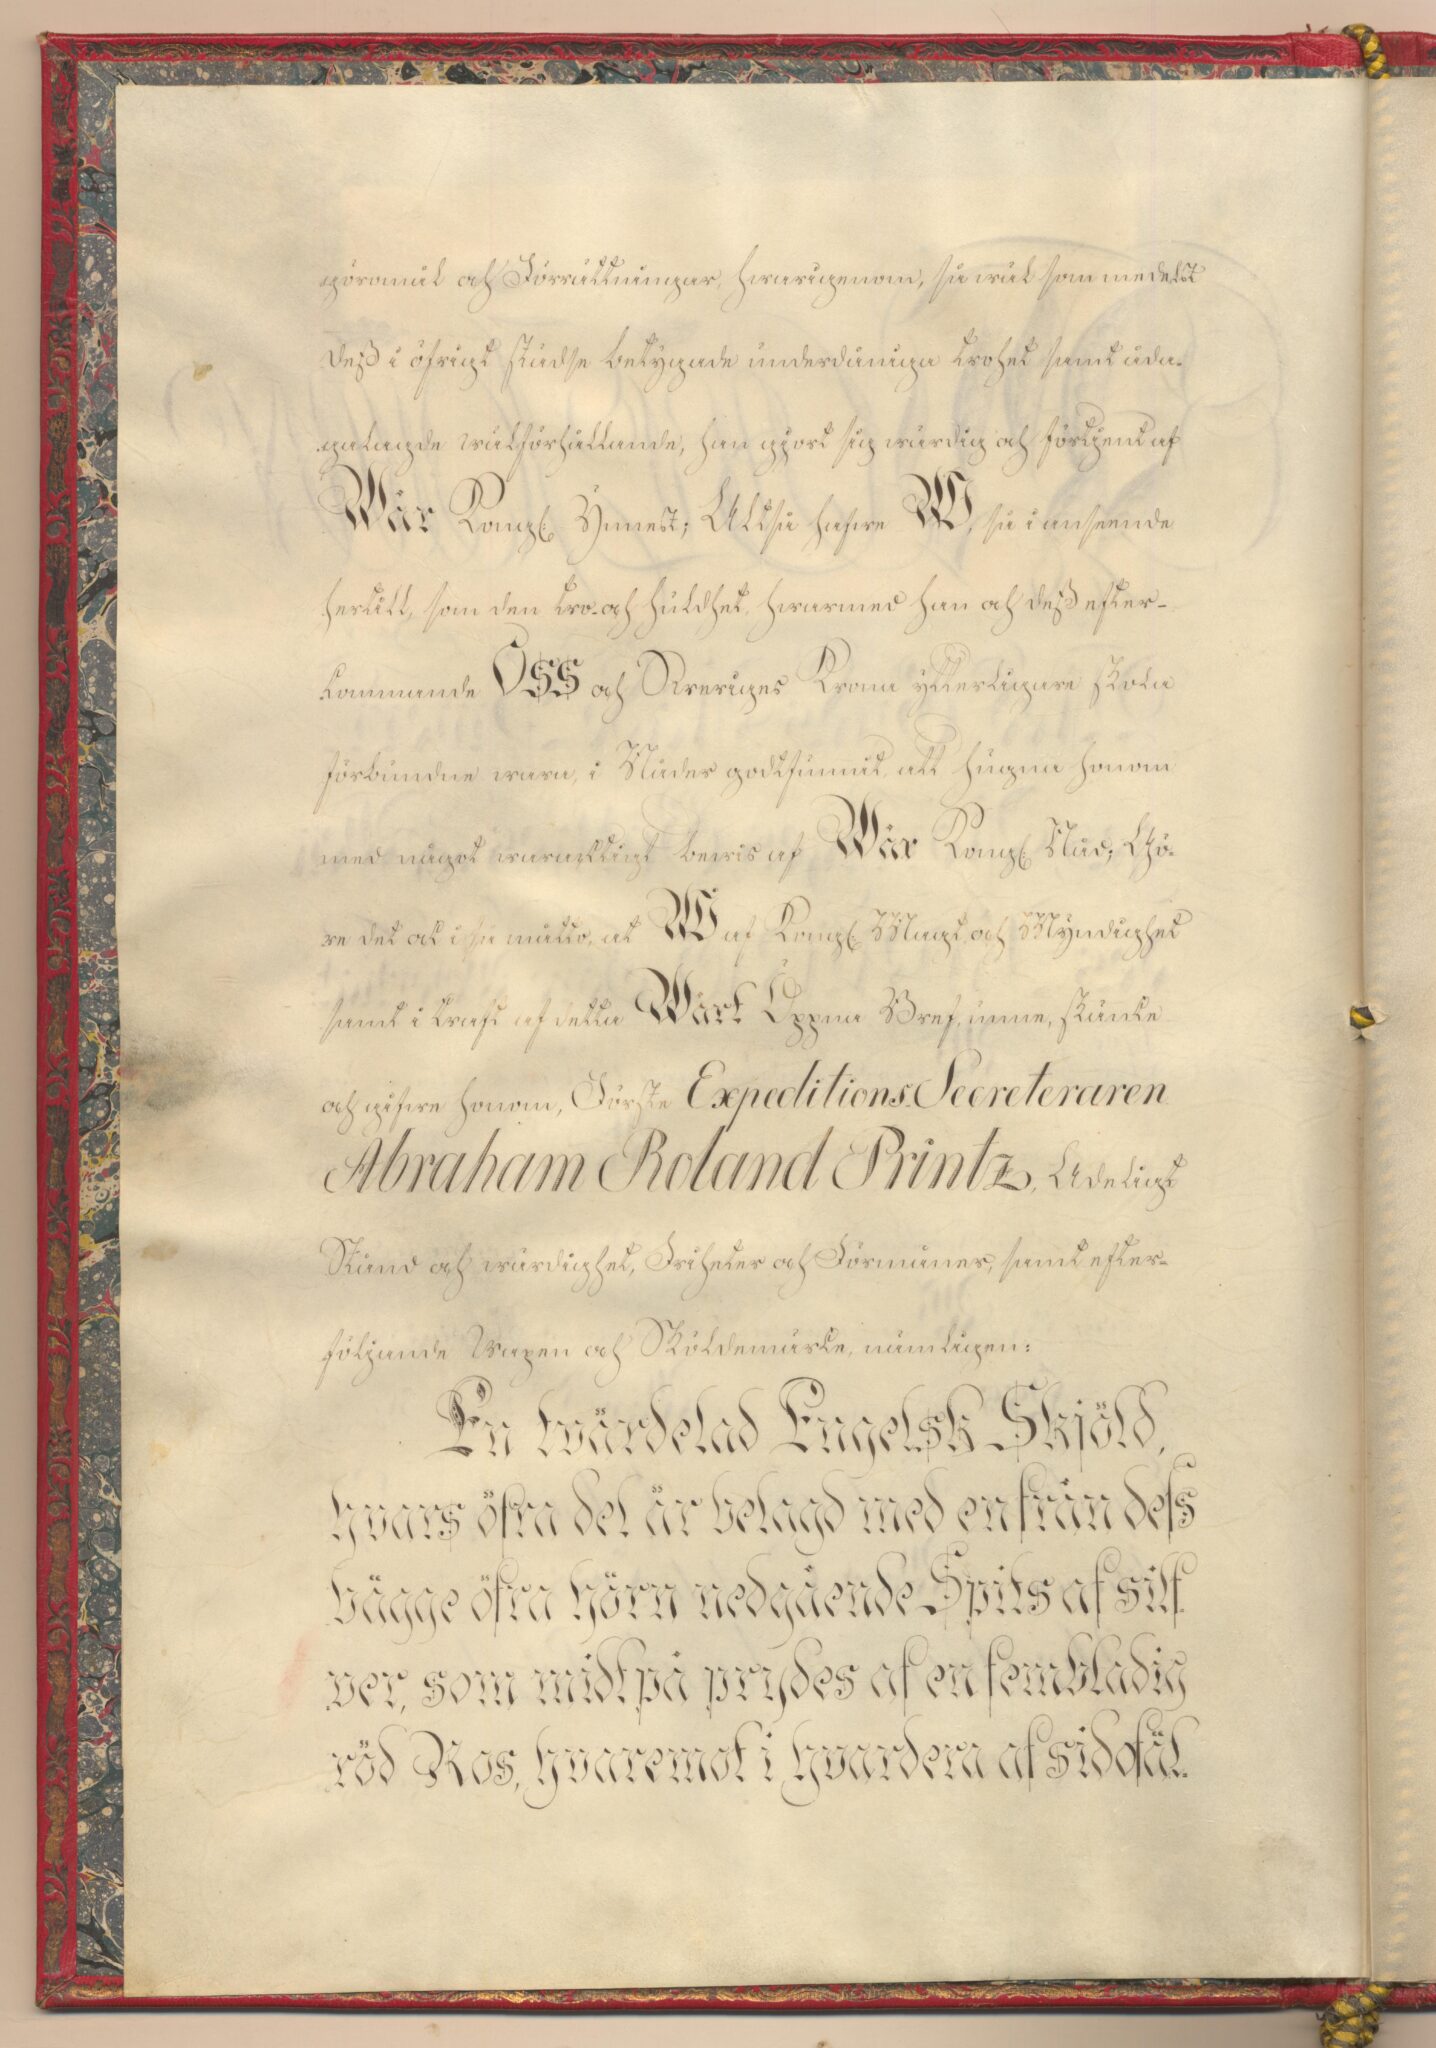 göromål och Förrättningar, hwarigenom, så wäl som medelst
deß i öfrigt städse betygade underdåniga trohet samt åda-
galagde wälförhållande, han gjort sig wärdig och förtjent af
Wår Kongl. Ynnest; Altså hafwe W, så i anseende
hertill, som den tro- och huldhet, hwarmed han och deß efter-
kommande OSS och Sweriges Krona ytterligare skola
förbundne wara, i Nåder godtfunnit, att hugna honom
med något waracktigt bewis af Wår Kongl. Nåd; Gö-
re det ock i så måtto, at W af Kongl. Magt och Myndighet
samt i kraft af detta Wårt Öppna Bref, unne, skänke
och gifwe honom, Förste Expeditions-Secreteraren
Abraham Roland Printz, Adeligt
Stånd och wärdighet, Friheter och Förmåner, samt efter-
följande Wapen och Sköldemärke, nämligen:
En twärdelad Engelsk Skjöld,
hvars öfra del är belagd med en från dess
bägge öfra hörn nedgående Spits af silf-
ver, som midtpå prydes af en fembladig
röd Ros, hvaremot i hvardera af sidofäl-